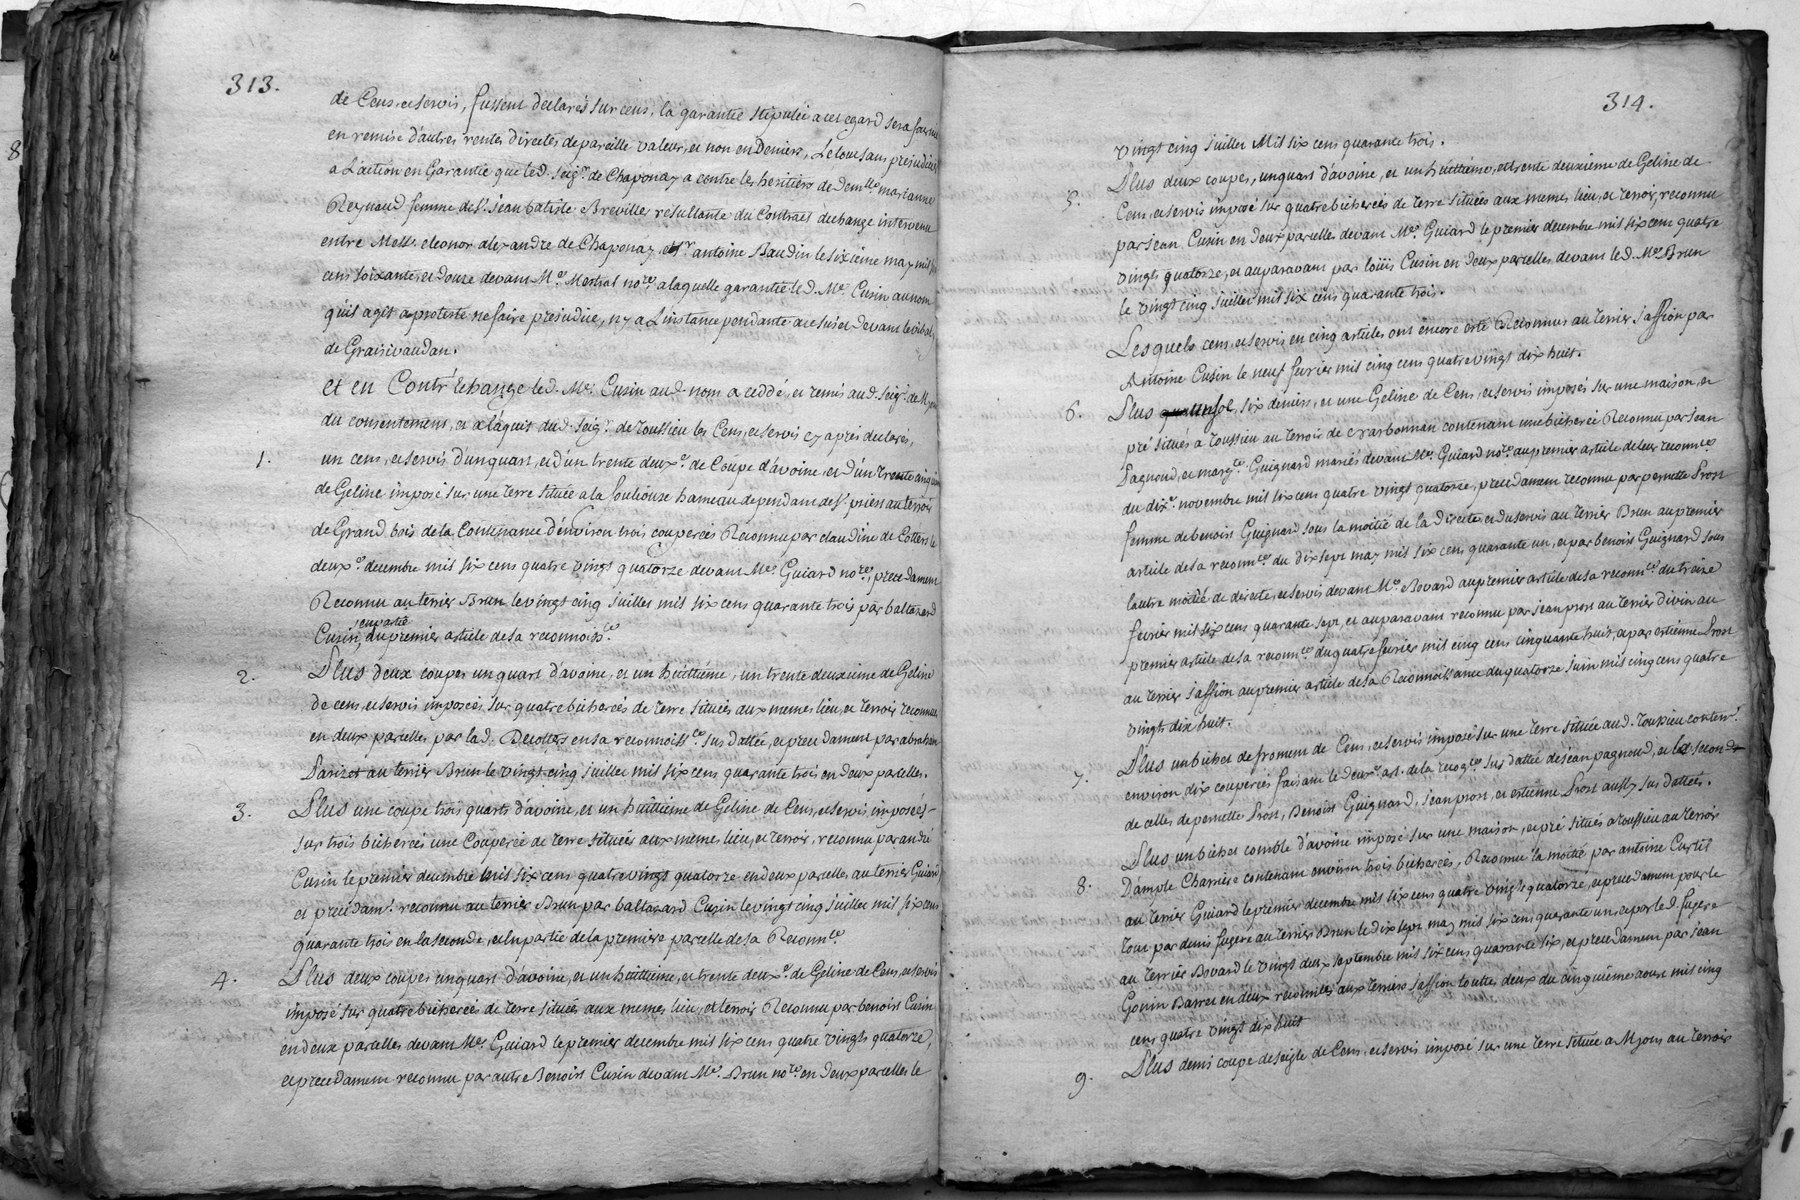 313.
de Cens, et servis, fussent declarés sur cens, la garantie stipulée a cet egard sera fournie
en remise d'autres rentes directes de pareille valeur, et non en Deniers, Le tout sans prejudice
a L'action en Garantie que led. seigr. de Chaponay a contre les heritiers de Demlle marianne
Reynaud femme de Sr. jean batiste Breviller resultante du Contract dechange intervenu
entre Messr. eleonor alexandre de Chaponay, et Sr antoine Baudin le sixieme may mil six
cens soixante, et douze devant Me. Mestral nore, a laquelle garantie led. Me. Cusin au nom
qu'il agit a protesté ne faire prejudice, n'y a L'instance pendante a ce sujet devant le vibaly
de Graisivaudan.
et en Contr'Echange led. Me. Cusin aud. nom a ceddé, et remis aud. seigr. de Myons
du consentement, et a l'aquit dud. seigr. de toussieu les Cens, et servis cy après declarés,
1. un cens, et servis d'un quart, et d'un trente deuxe. de Coupe d'avoine, et d'un trente cinquieme
de Geline imposé sur une terre située a la fouliouse hameau dependant de St. priest au terroir
de Grand bois de la Contenance d'environ trois couperées Reconnu par claudine de Cotters le
deuxe. decembre mil six cens quatre vingt quatorze devant Me. Guiard nore, precedament
Reconnu au terrier Brun le vingt cinq juillet mil six cens quarante trois par baltazard
en partie
Cusin, au premier article de sa reconnoissce
2. Plus deux coupes un quart d'avoine, et un huittième, un trente deuxieme de Geline
de cens, et servis imposés sur quatre bicherées de terre situées aux memes lieu, et terroir reconnus
en deux parcelles par lad. Decotters en sa reconnoissce sus dattée, et precedament par abraham
Parizet au terrier Brun le vingt cinq juillet mil six cens quarante trois en deux parcelles.
3. Plus une coupe trois quarts d'avoine, et un huittieme de Geline de Cens, et servis imposés
sur trois bicherées une Couperée de terre situées aux meme lieu, et terroir, reconnu par andré
Cusin le premier decembre mil six cens quatre vingt quatorze en deux parcelles au terrier Guiard
et precedamt. reconnu au terrier Brun par baltazard Cusin le vingt cinq juillet mil six cens
quarante trois en la seconde, et en partie de la premiere parcelle de sa Reconnce
4. Plus deux coupes un quart d'avoine, et un huittieme, et trente deuxe. de Geline de Cens, et servis
imposé sur quatre bicherées de terre situées aux memes lieu, et terroir Reconnu par benoist Cusin
en deux parcelles devant Me. Guiard le premier decembre mil six cens quatre vingts quatorze,
et precedament reconnu par autre Benoist Cusin devant Me. Brun nore. en deux parcelles le
314.
vingt cinq juillet Mil six cens quarante trois.
5. Plus deux coupes, un quart d'avoine, et un huittieme, et trente deuxième de Geline de
Cens, et servis imposé sur quatre bicherées de terre situées aux memes lieu, et terroir, reconnu
par jean Cusin en deux parcelles devant Me. Guiard le premier decembre mil six cens quatre
vingts quatorze, et auparavant par loüis Cusin en deux parcelles devant led. Me. Brun
le vingt cinq juillet mil six cens quarante trois.
Lesquels cens, et servis en cinq articles ont encore esté Reconnus au terrier jassion par
Antoine Cusin le neuf fevrier mil cinq cens quatre vingt dix huit.
6. Plus un sol, six deniers, et une Geline de Cens, et servis imposés sur une maison, et
pré situés a toussieu au terroir de Charbonnan contenant une bicherée Reconnu par jean
Pagnoud, et margte. Guignard mariés devant Me. Guiard nore. au premier article de leur reconnce
du dixe. novembre mil six cens quatre vingt quatorze, precedament reconnu par pernette Prost
femme de benoist Guignard sous la moitié de la directe, et du servis au terrier Brun au premier
article de sa reconnce du dix sept may mil six cens quarante un, et par benoist Guignard sous
lautre moitié de directe, et servis devant Me. Bovard au premier article de sa reconnce du treize
fevrier mil six cens quarante sept, et auparavant reconnu par jean prost au terrier divin au
premier article de sa reconnce du quatre fevrier mil cinq cens cinquante huit, et par estienne Prost
au terrier jassion au premier article de sa Reconnoissance du quatorze juin mil cinq cens quatre
vingt dix huit.
7. Plus un bichet de froment de Cens, et servis imposé sur une terre située aud. toussieu content.
environ dix couperées faisant le deuxe. art. de la recogce sus dattée de jean pagnoud, et le second
de celles de pernette Prost, Benoist Guignard, jean prost, et estienne Prost aussy sus dattées.
8. Plus un bichet comble d'avoine imposé sur une maison, et pré situés a toussieu au terroir
D'ample Charrise contenant environ trois bicherées, Reconnu la moitié par antoine Curtil
au terrier Guiard le premier decembre mil six cens quatre vingts quatorze, et precedament pour le
tout par denis fugere au terrier Brun le dix sept may mil six cens quarante un, et par led. fugere
au terrier Bovard le vingt deux septembre mil six cens quarante six, et precedament par jean
Gonin Barret en deux reconnces aux terriers jassion toutes deux du cinquième aoust mil cinq
cens quatre vingt dix huit
9. Plus demi coupe de seigle de Cens, et servis imposé sur une terre située a Myons au terroir